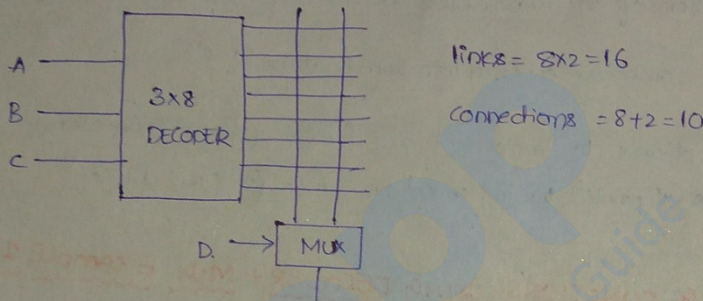 A
B
C
3x8
DECODER
D.
MUX
links = 8x2=16
connections = 8+2=10
Guide